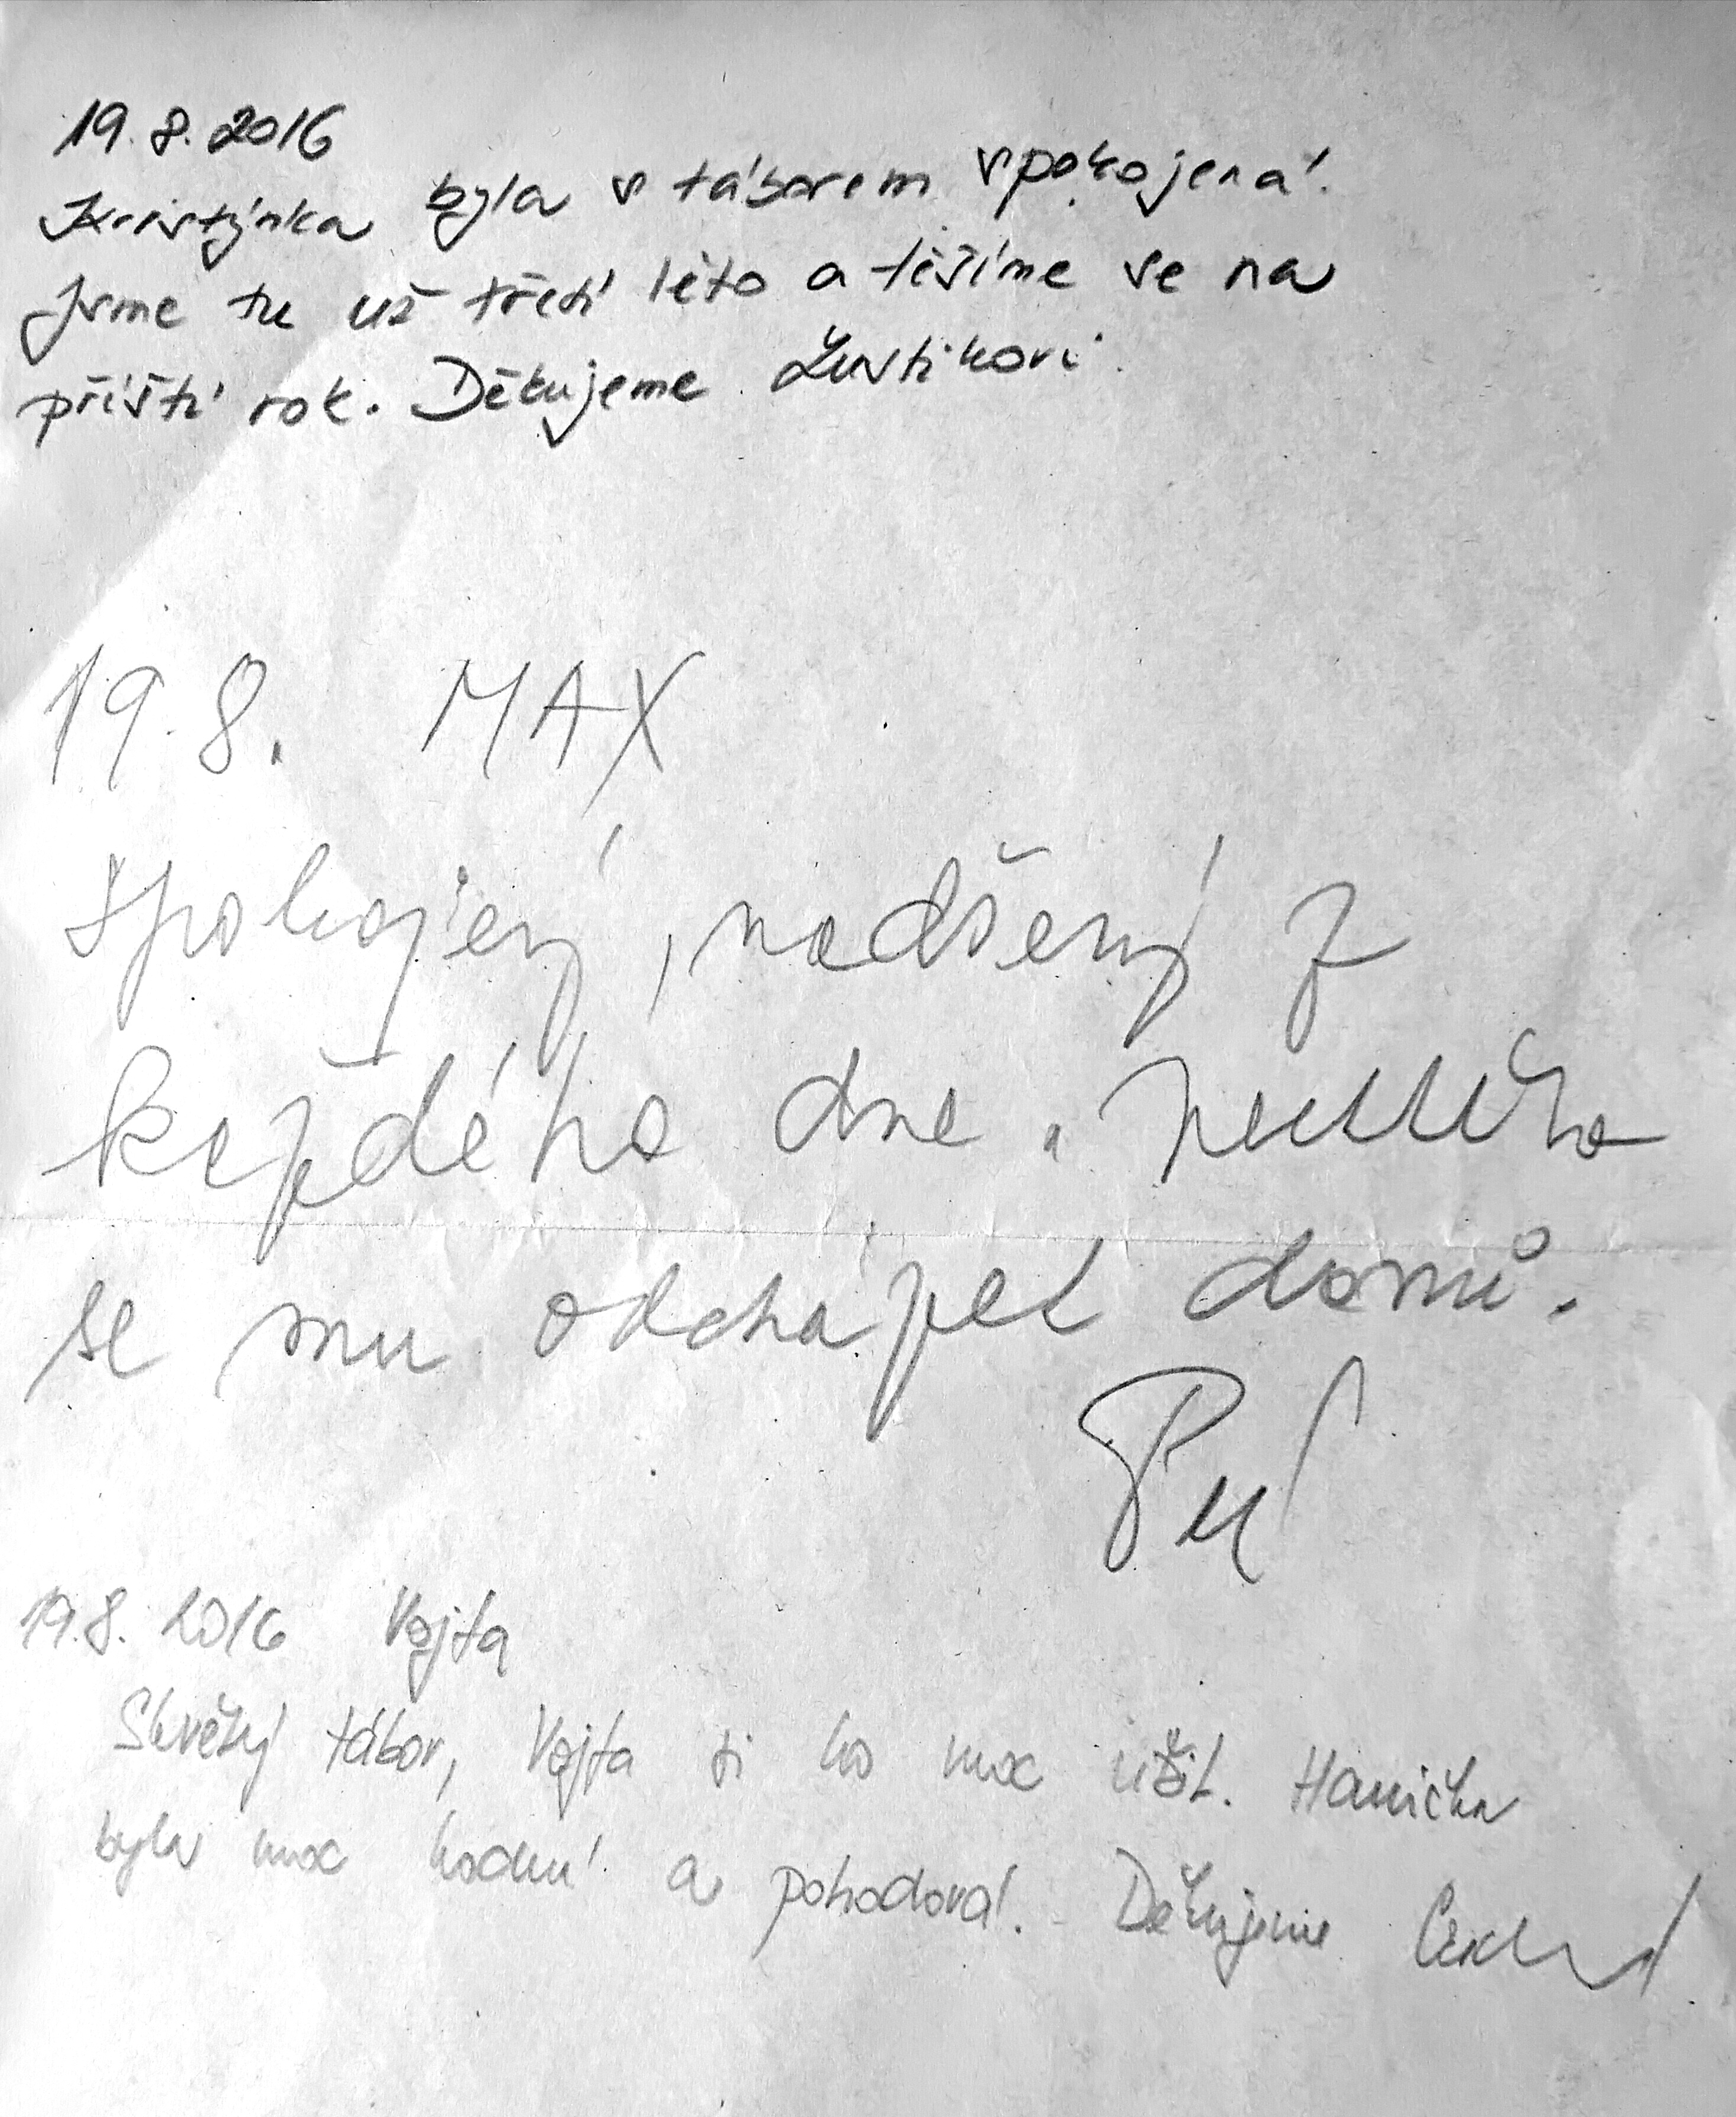 19.8.2016
Kristýnka byla s táborem spokojená.
Jsme tu už třetí léto a těšíme se na
příští rok. Děkujeme
19.8. MAX
spokojený, nadšený z
každého dne.
se mu odcházet domů.
19.8. 2016 Vojta
Skvělý tábor, Vojta si ho moc užil. Hanička
byla moc hodná a pohodová. Děkujeme